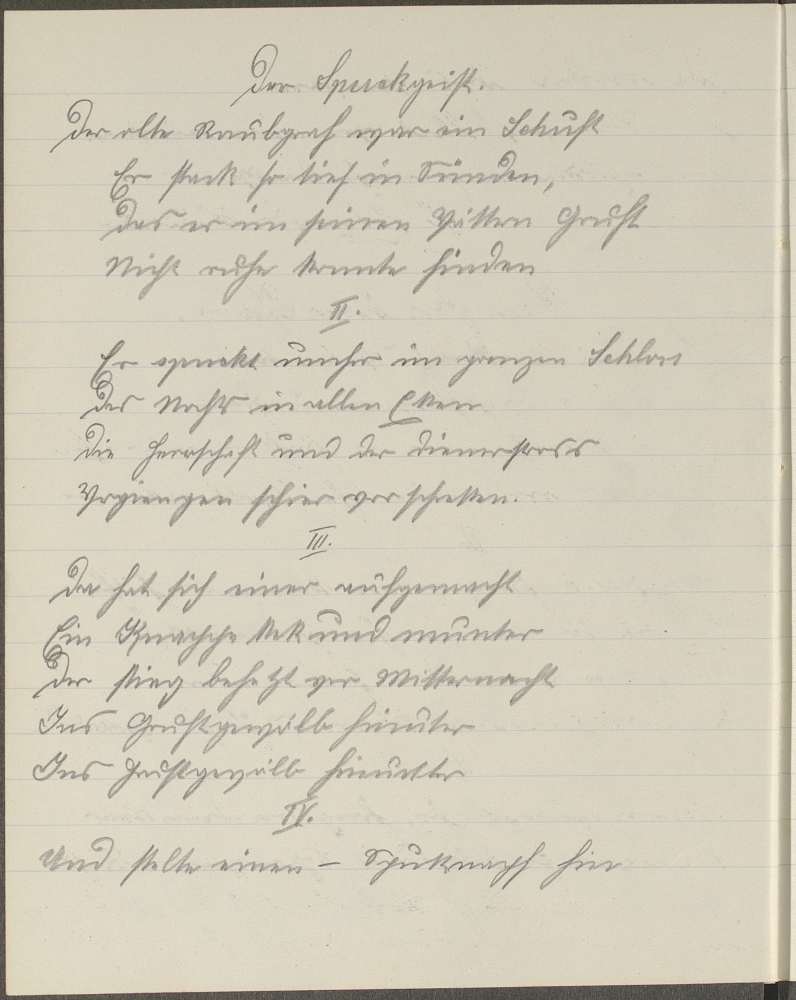 Der Spuckgeist.
Der alte Raubgraf war ein Schuft
Er stack so tief in Sünden,
Das er im seinen Vättern Gruft
Nicht ruhe konnte finden
II.
Er spuckt umher im ganzen Schloss
Des Nachts in allen Eken
Die Herrschaft und der Dienertross
Vergiengen schier vor schreken.
III.
Da hat sich einer aufgemacht
Ein Knappe kek und munter
Der stieg beherzt vor Mitternacht
Ins Gruftgewölb hinunter
Ins Gruftgewölb hinunter
IV.
Und stelte einen – Spuknapf hier